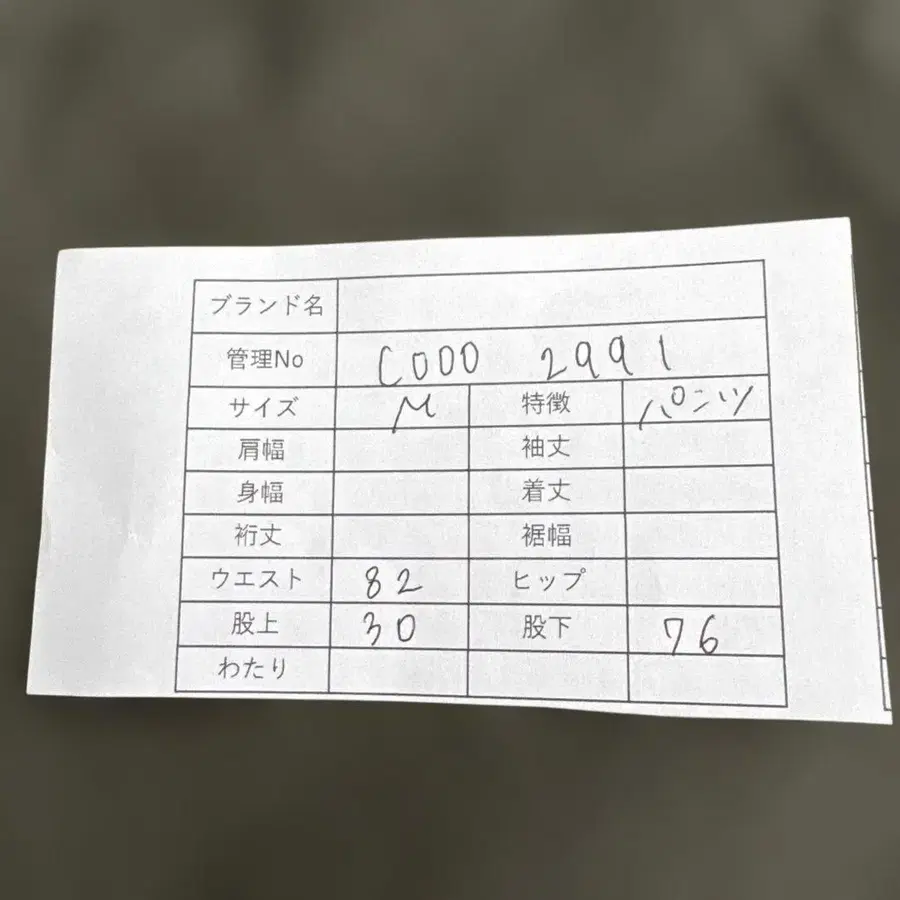 ブランド名
管理No C000 2991
サイズ M 特徴 パンツ
肩幅 袖丈
身幅 着丈
裄丈 裾幅
ウエスト 82 ヒップ
股上 30 股下 76
わたり